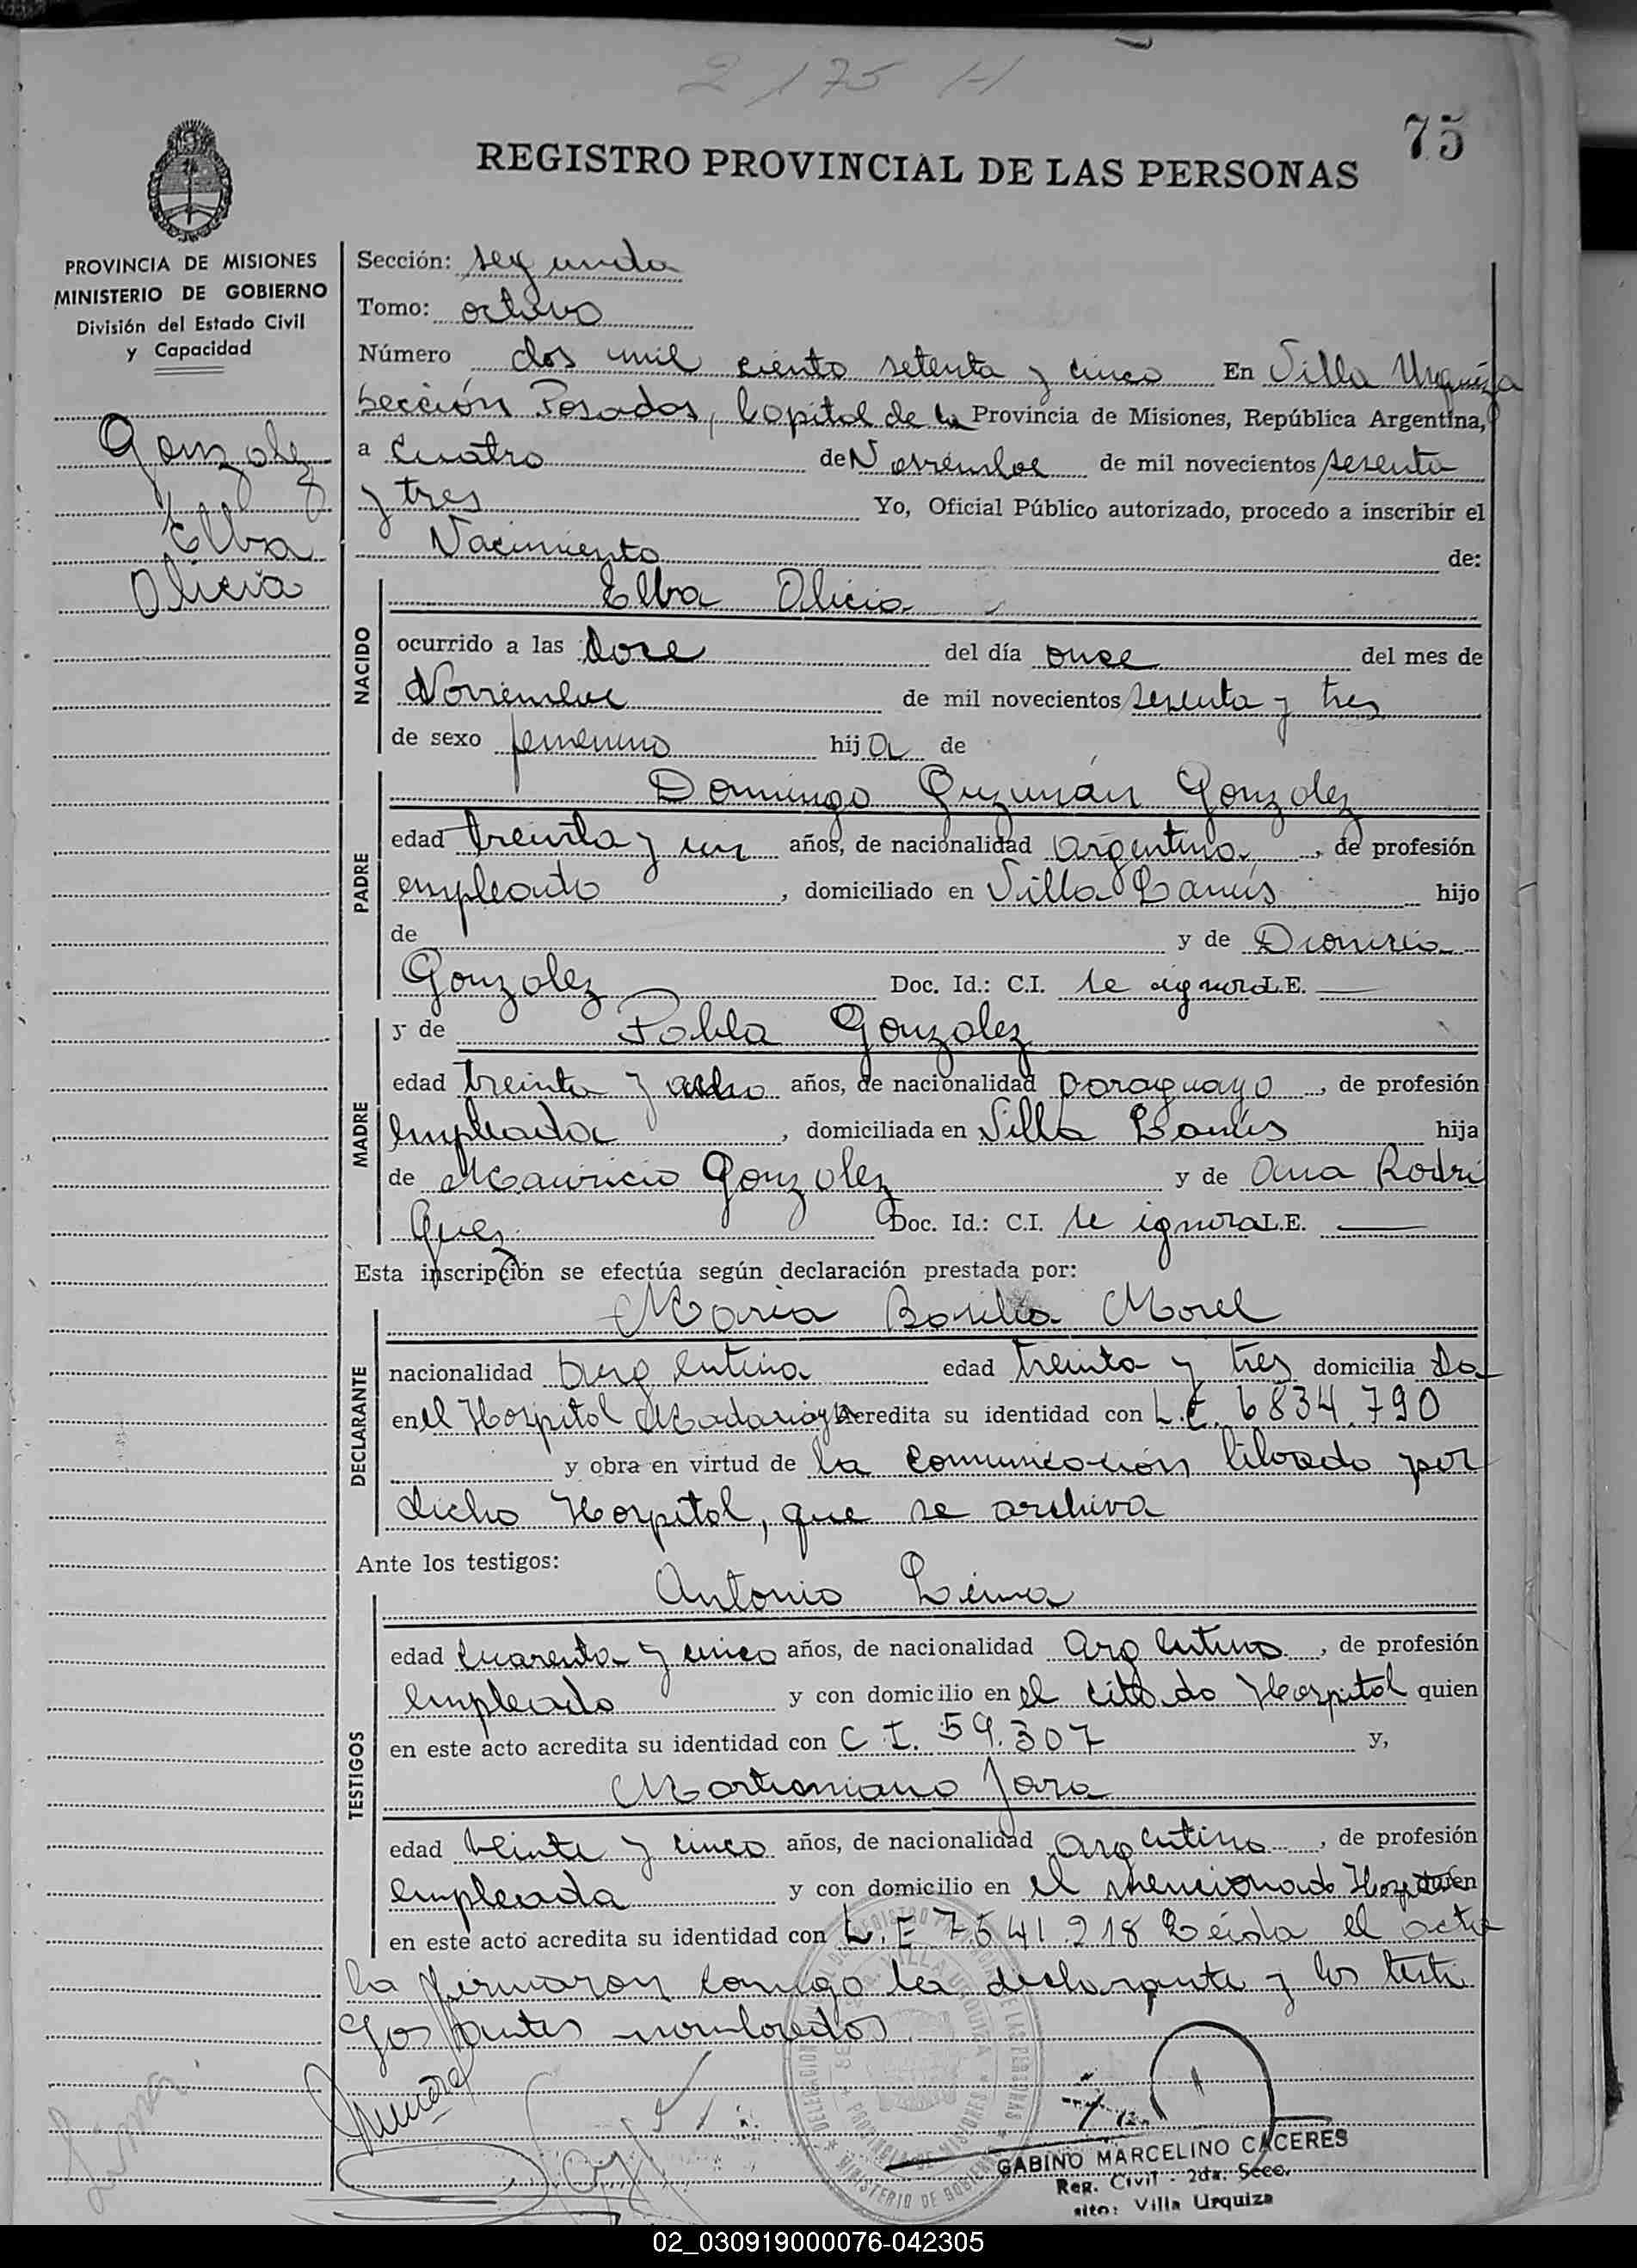 2175 H
75
REGISTRO PROVINCIAL DE LAS PERSONAS
PROVINCIA DE MISIONES
MINISTERIO DE GOBIERNO
División del Estado Civil
y Capacidad
Gonzalez
Elba
Alicia
Sección: segunda
Tomo: octavo
Número dos mil ciento setenta y cinco En Villa Urquiza
Sección Posadas, Capital de la Provincia de Misiones, República Argentina,
a cuatro de Noviembre de mil novecientos sesenta
y tres Yo, Oficial Público autorizado, procedo a inscribir el
Nacimiento de:
NACIDO
Elba Alicia
ocurrido a las doce del día once del mes de
Noviembre de mil novecientos sesenta y tres
de sexo femenino hija de
PADRE
Domingo Guzmán Gonzalez
edad treinta y un años, de nacionalidad argentina, de profesión
empleado, domiciliado en Villa Lanús hijo
de y de Dionisia
Gonzalez Doc. Id.: C.I. se ignora L.E. —
MADRE
y de Pabla Gonzalez
edad treinta y ocho años, de nacionalidad paraguaya, de profesión
empleada, domiciliada en Villa Lanús hija
de Mauricio Gonzalez y de Ana Rodri
guez Doc. Id.: C.I. se ignora L.E. —
Esta inscripción se efectúa según declaración prestada por:
DECLARANTE
María Basilia Morel
nacionalidad argentina edad treinta y tres domiciliada
en el Hospital Madariaga acredita su identidad con L.C. 6834.790
y obra en virtud de la comunicación librada por
dicho Hospital, que se archiva
Ante los testigos:
TESTIGOS
Antonio Lima
edad cuarenta y cinco años, de nacionalidad argentino, de profesión
empleado y con domicilio en el citado Hospital quien
en este acto acredita su identidad con C.I. 59.307 y,
Martiniano Jara
edad veinte y cinco años, de nacionalidad argentino, de profesión
empleada y con domicilio en el mencionado Hospital quien
en este acto acredita su identidad con L.E 7541.218 Leida el acta
la firmaron conmigo la declarante y los testi
gos antes nombrados
Lima
GABINO MARCELINO CACERES
Reg. Civil - 2da. Secc.
sito: Villa Urquiza
02_030919000076-042305